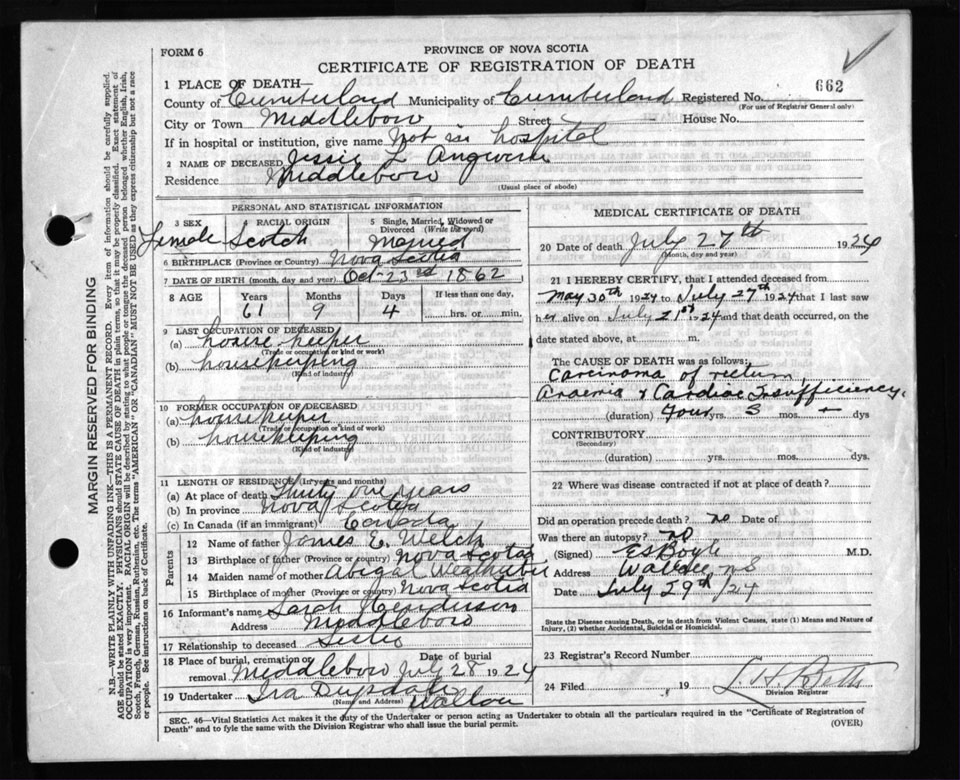 FORM 6
PROVINCE OF NOVA SCOTIA
CERTIFICATE OF REGISTRATION OF DEATH
662
1 PLACE OF DEATH—
County of Cumberland Municipality of Cumberland Registered No.
(For use of Registrar General only)
City or Town Middleboro Street - House No.
If in hospital or institution, give name Not in hospital
2 NAME OF DECEASED Jessie L
Residence Middleboro
(Usual place of abode)
PERSONAL AND STATISTICAL INFORMATION
3 SEX 4 RACIAL ORIGIN 5 Single, Married, Widowed or Divorced (Write the word)
Female Scotch Married
6 BIRTHPLACE (Province or Country) Nova Scotia
7 DATE OF BIRTH (month, day and year) Oct 23rd 1862
8 AGE Years Months Days If less than one day,
61 9 4 hrs. or min.
9 LAST OCCUPATION OF DECEASED
(a) house keeper
(Trade or occupation or kind or work)
(b) housekeeping
(Kind of industry)
10 FORMER OCCUPATION OF DECEASED
(a) housekeeper
(Trade or occupation or kind of work)
(b) housekeeping
(Kind of industry)
11 LENGTH OF RESIDENCE (In years and months)
(a) At place of death Thirty one years
(b) In province Nova Scotia
(c) In Canada (if an immigrant) Canada
Parents
12 Name of father James E. Welch
13 Birthplace of father (Province or country) Nova Scotia
14 Maiden name of mother Abigal
15 Birthplace of mother (Province or country) Nova Scotia
16 Informant's name Sarah Henderson
Address Middleboro
17 Relationship to deceased Sister
18 Place of burial, cremation or removal Middleboro Date of burial July 28 1924
19 Undertaker Ira
(Name and Address)
MEDICAL CERTIFICATE OF DEATH
20 Date of death July 27th 1924
(Month, day and year)
21 I HEREBY CERTIFY, that I attended deceased from
May 30th 1924 to July 27th 1924 that I last saw
her alive on July 21st 1924 and that death occurred, on the
date stated above, at m.
The CAUSE OF DEATH was as follows:
Carcinoma of rectum
Anaemia & Cardiac Insufficiency.
(duration) Four yrs. 3 mos. - dys
CONTRIBUTORY
(Secondary)
(duration) yrs. mos. dys
22 Where was disease contracted if not at place of death?
Did an operation precede death? no Date of
Was there an autopsy? no
(Signed) E S Boyle M.D.
Address Wallace NS
Date July 29th/24
State the Disease causing Death, or in death from Violent Causes, state (1) Means and Nature of
Injury, (2) whether Accidental, Suicidal or Homicidal.
23 Registrar's Record Number
24 Filed 19
Division Registrar
SEC. 46—Vital Statistics Act makes it the duty of the Undertaker or person acting as Undertaker to obtain all the particulars required in the "Certificate of Registration of
Death" and to fyle the same with the Division Registrar who shall issue the burial permit.
(OVER)
MARGIN RESERVED FOR BINDING
N.B.—WRITE PLAINLY WITH UNFADING INK—THIS IS A PERMANENT RECORD. Every item of information should be carefully supplied.
AGE should be stated EXACTLY. PHYSICIANS should STATE CAUSE OF DEATH in plain terms, so that it may be properly classified. Exact statement of
OCCUPATION is very important. RACIAL ORIGIN will be described by stating to what people or tongue the deceased person belonged whether English, Irish,
Scotch, French, German, Russian, Ruthenian, etc. The terms "AMERICAN" OR "CANADIAN" MUST NOT BE USED as they express citizenship but not a race
or people. See instructions on back of Certificate.